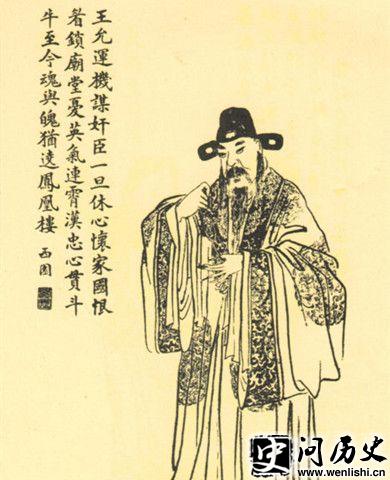 王允運機謀奸臣一旦休心懷家國恨
眉鎖廟堂憂英氣連霄漢忠心貫斗
牛至今魂與魄猶遶鳳凰樓
西園
史问历史
www.wenlishi.cn